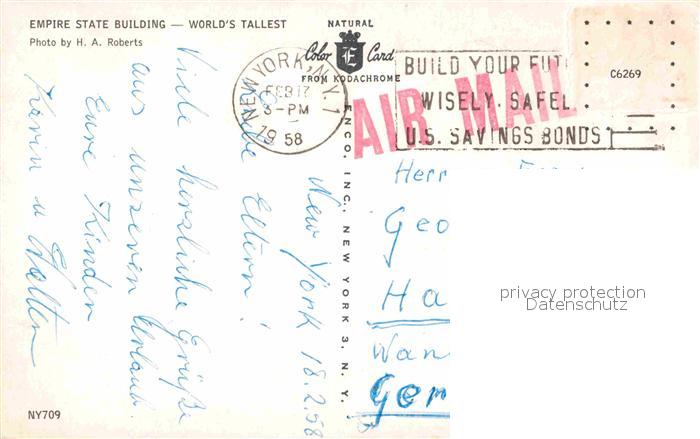 EMPIRE STATE BUILDING — WORLD'S TALLEST
Photo by H. A. Roberts
NATURAL
Color E Card
FROM KODACHROME
NEW YORK, N.Y. 1
FEB 17
3-PM
1958
BUILD YOUR FUT
WISELY, SAFEL
U.S. SAVINGS BONDS
C6269
AIR MAIL
ENCO, INC., NEW YORK 3, N. Y.
New York 18.2.58
Liebe Eltern!
Viele herzliche Grüße
aus unserem Urlaub.
Eure Kinder
Karin u Walter
Herr
Geo
Ha
Wan
Ger
privacy protection
Datenschutz
NY709